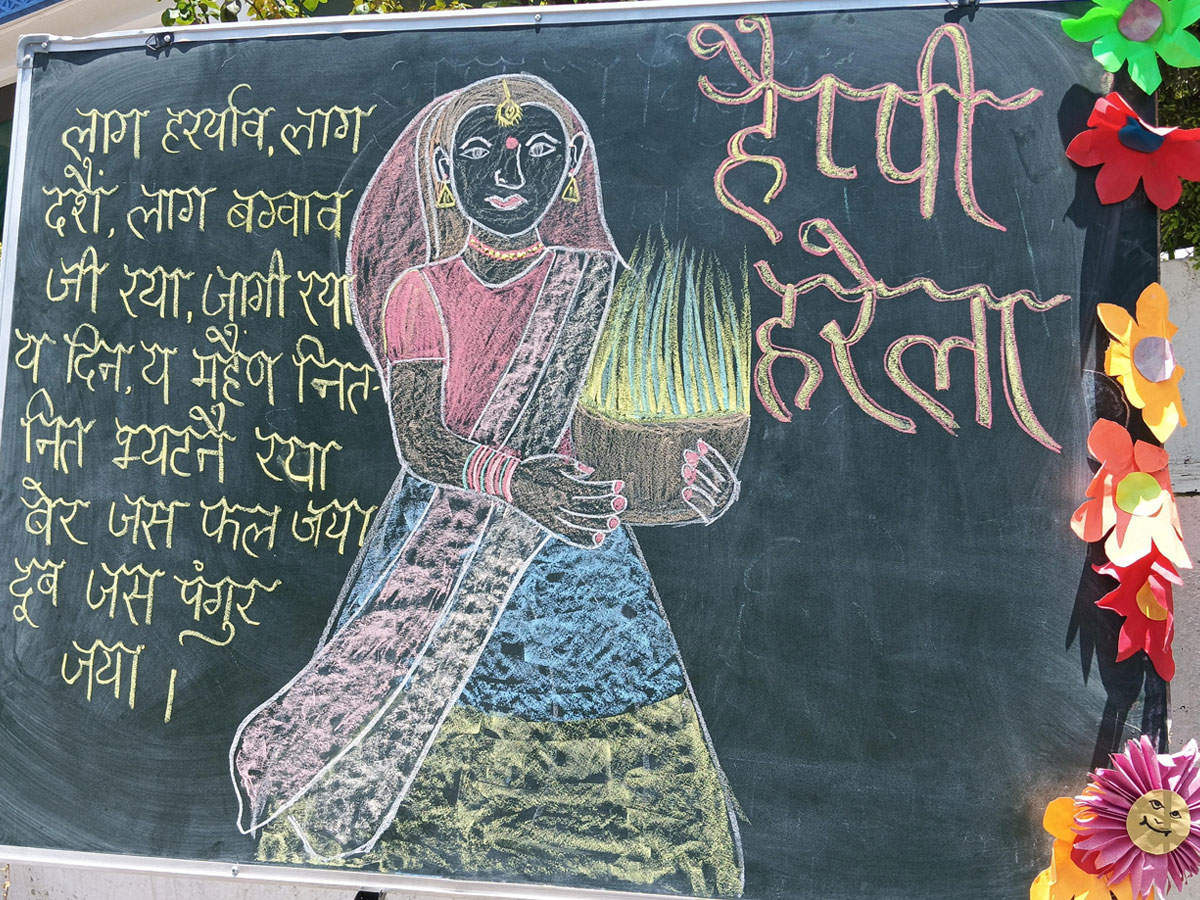 लाग हर्याव, लाग
दशैं, लाग बग्वाव
जी रया, जागी रया
य दिन, य महैण नित-
नित भ्यटनै रया
बेर जस फल जया
दूब जस पंगुर
जया ।
हैप्पी
हरेला